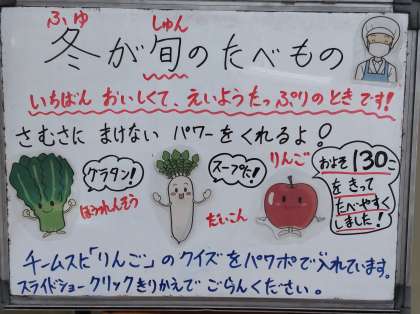 ふゆ しゅん
冬が旬のたべもの
いちばん おいしくて、えいようたっぷりのときです!
さむさに まけない パワーをくれるよ!
グラタン!
ほうれんそう
スープに!
だいこん
りんご
およそ130こ
をきって
たべやすく
しました!
チームスに「りんご」のクイズをパワポで入れています。
スライドショー クリックきりかえで ごらんください。